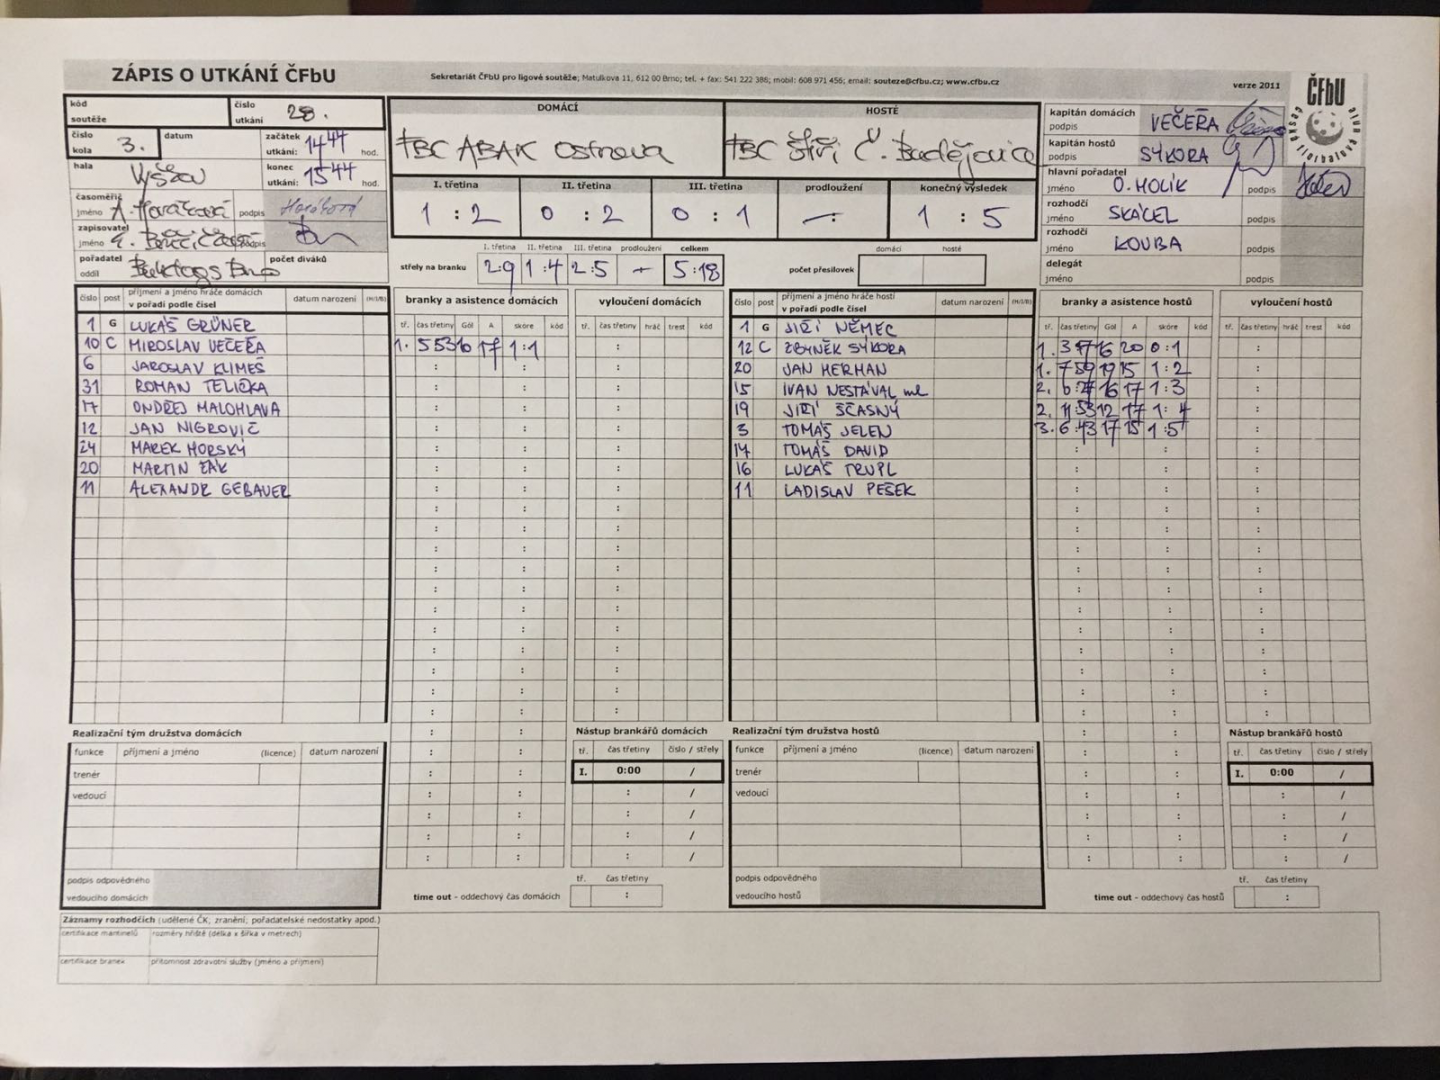 ZÁPIS O UTKÁNÍ ČFbU
Sekretariát ČFbU pro ligové soutěže; Matulkova 11, 612 00 Brno; tel. + fax: 541 222 386; mobil: 608 971 456; email: souteze@cfbu.cz; www.cfbu.cz
verze 2011
ČFbU
kód soutěže
číslo utkání 28.
číslo kola 3.
datum
začátek utkání: 14 44 hod.
hala Vyškov
konec utkání: 15 44 hod.
časoměřič jméno A. Horáčková podpis Horáčková
zapisovatel jméno podpis
pořadatel oddíl Bulldogs Brno
počet diváků
DOMÁCÍ
FBC ABAK Ostrava
HOSTÉ
FBC Štíři Č. Budějovice
I. třetina II. třetina III. třetina prodloužení konečný výsledek
1 : 2 0 : 2 0 : 1 - : 1 : 5
I. třetina II. třetina III. třetina prodloužení celkem
střely na branku 2:9 1:4 2:5 - 5:18
domácí hosté
počet přesilovek
kapitán domácích podpis VEČEŘA
kapitán hostů podpis SÝKORA
hlavní pořadatel jméno O. HOLÍK podpis
rozhodčí jméno SKÁCEL podpis
rozhodčí jméno KOUBA podpis
delegát jméno podpis
číslo post příjmení a jméno hráče domácích v pořadí podle čísel datum narození (M/J/B)
1 G LUKÁŠ GRÜNER
10 C MIROSLAV VEČEŘA
6 JAROSLAV KLIMEŠ
31 ROMAN TELIČKA
17 ONDŘEJ MALOHLAVA
12 JAN NIGROVIČ
24 MAREK HORSKÝ
20 MARTIN ŽÁK
11 ALEXANDR GEBAUER
branky a asistence domácích
tř. čas třetiny Gól A skóre kód
1. 5 53 10 17 1:1
vyloučení domácích
tř. čas třetiny hráč trest kód
číslo post příjmení a jméno hráče hostí v pořadí podle čísel datum narození (M/J/B)
1 G JIŘÍ NĚMEC
12 C ZBYNĚK SÝKORA
20 JAN HERMAN
15 IVAN NESTÁVAL ml
19 JIŘÍ ŠČASNÝ
3 TOMÁŠ JELEN
17 TOMÁŠ DAVID
16 LUKÁŠ TRUPL
11 LADISLAV PEŠEK
branky a asistence hostů
tř. čas třetiny Gól A skóre kód
1. 3 17 16 20 0:1
1. 7 59 19 15 1:2
2. 6:27 16 17 1:3
2. 11:53 12 17 1:4
3. 6:43 17 15 1:5
vyloučení hostů
tř. čas třetiny hráč trest kód
Realizační tým družstva domácích
funkce příjmení a jméno (licence) datum narození
trenér
vedoucí
podpis odpovědného vedoucího domácích
Nástup brankářů domácích
tř. čas třetiny číslo / střely
I. 0:00 /
tř. čas třetiny
time out - oddechový čas domácích :
Realizační tým družstva hostů
funkce příjmení a jméno (licence) datum narození
trenér
vedoucí
podpis odpovědného vedoucího hostů
Nástup brankářů hostů
tř. čas třetiny číslo / střely
I. 0:00 /
tř. čas třetiny
time out - oddechový čas hostů :
Záznamy rozhodčích (udělené ČK, zranění, pořadatelské nedostatky apod.)
certifikace mantinelů rozměry hřiště (délka x šířka v metrech)
certifikace branek přítomnost zdravotní služby (jméno a příjmení)